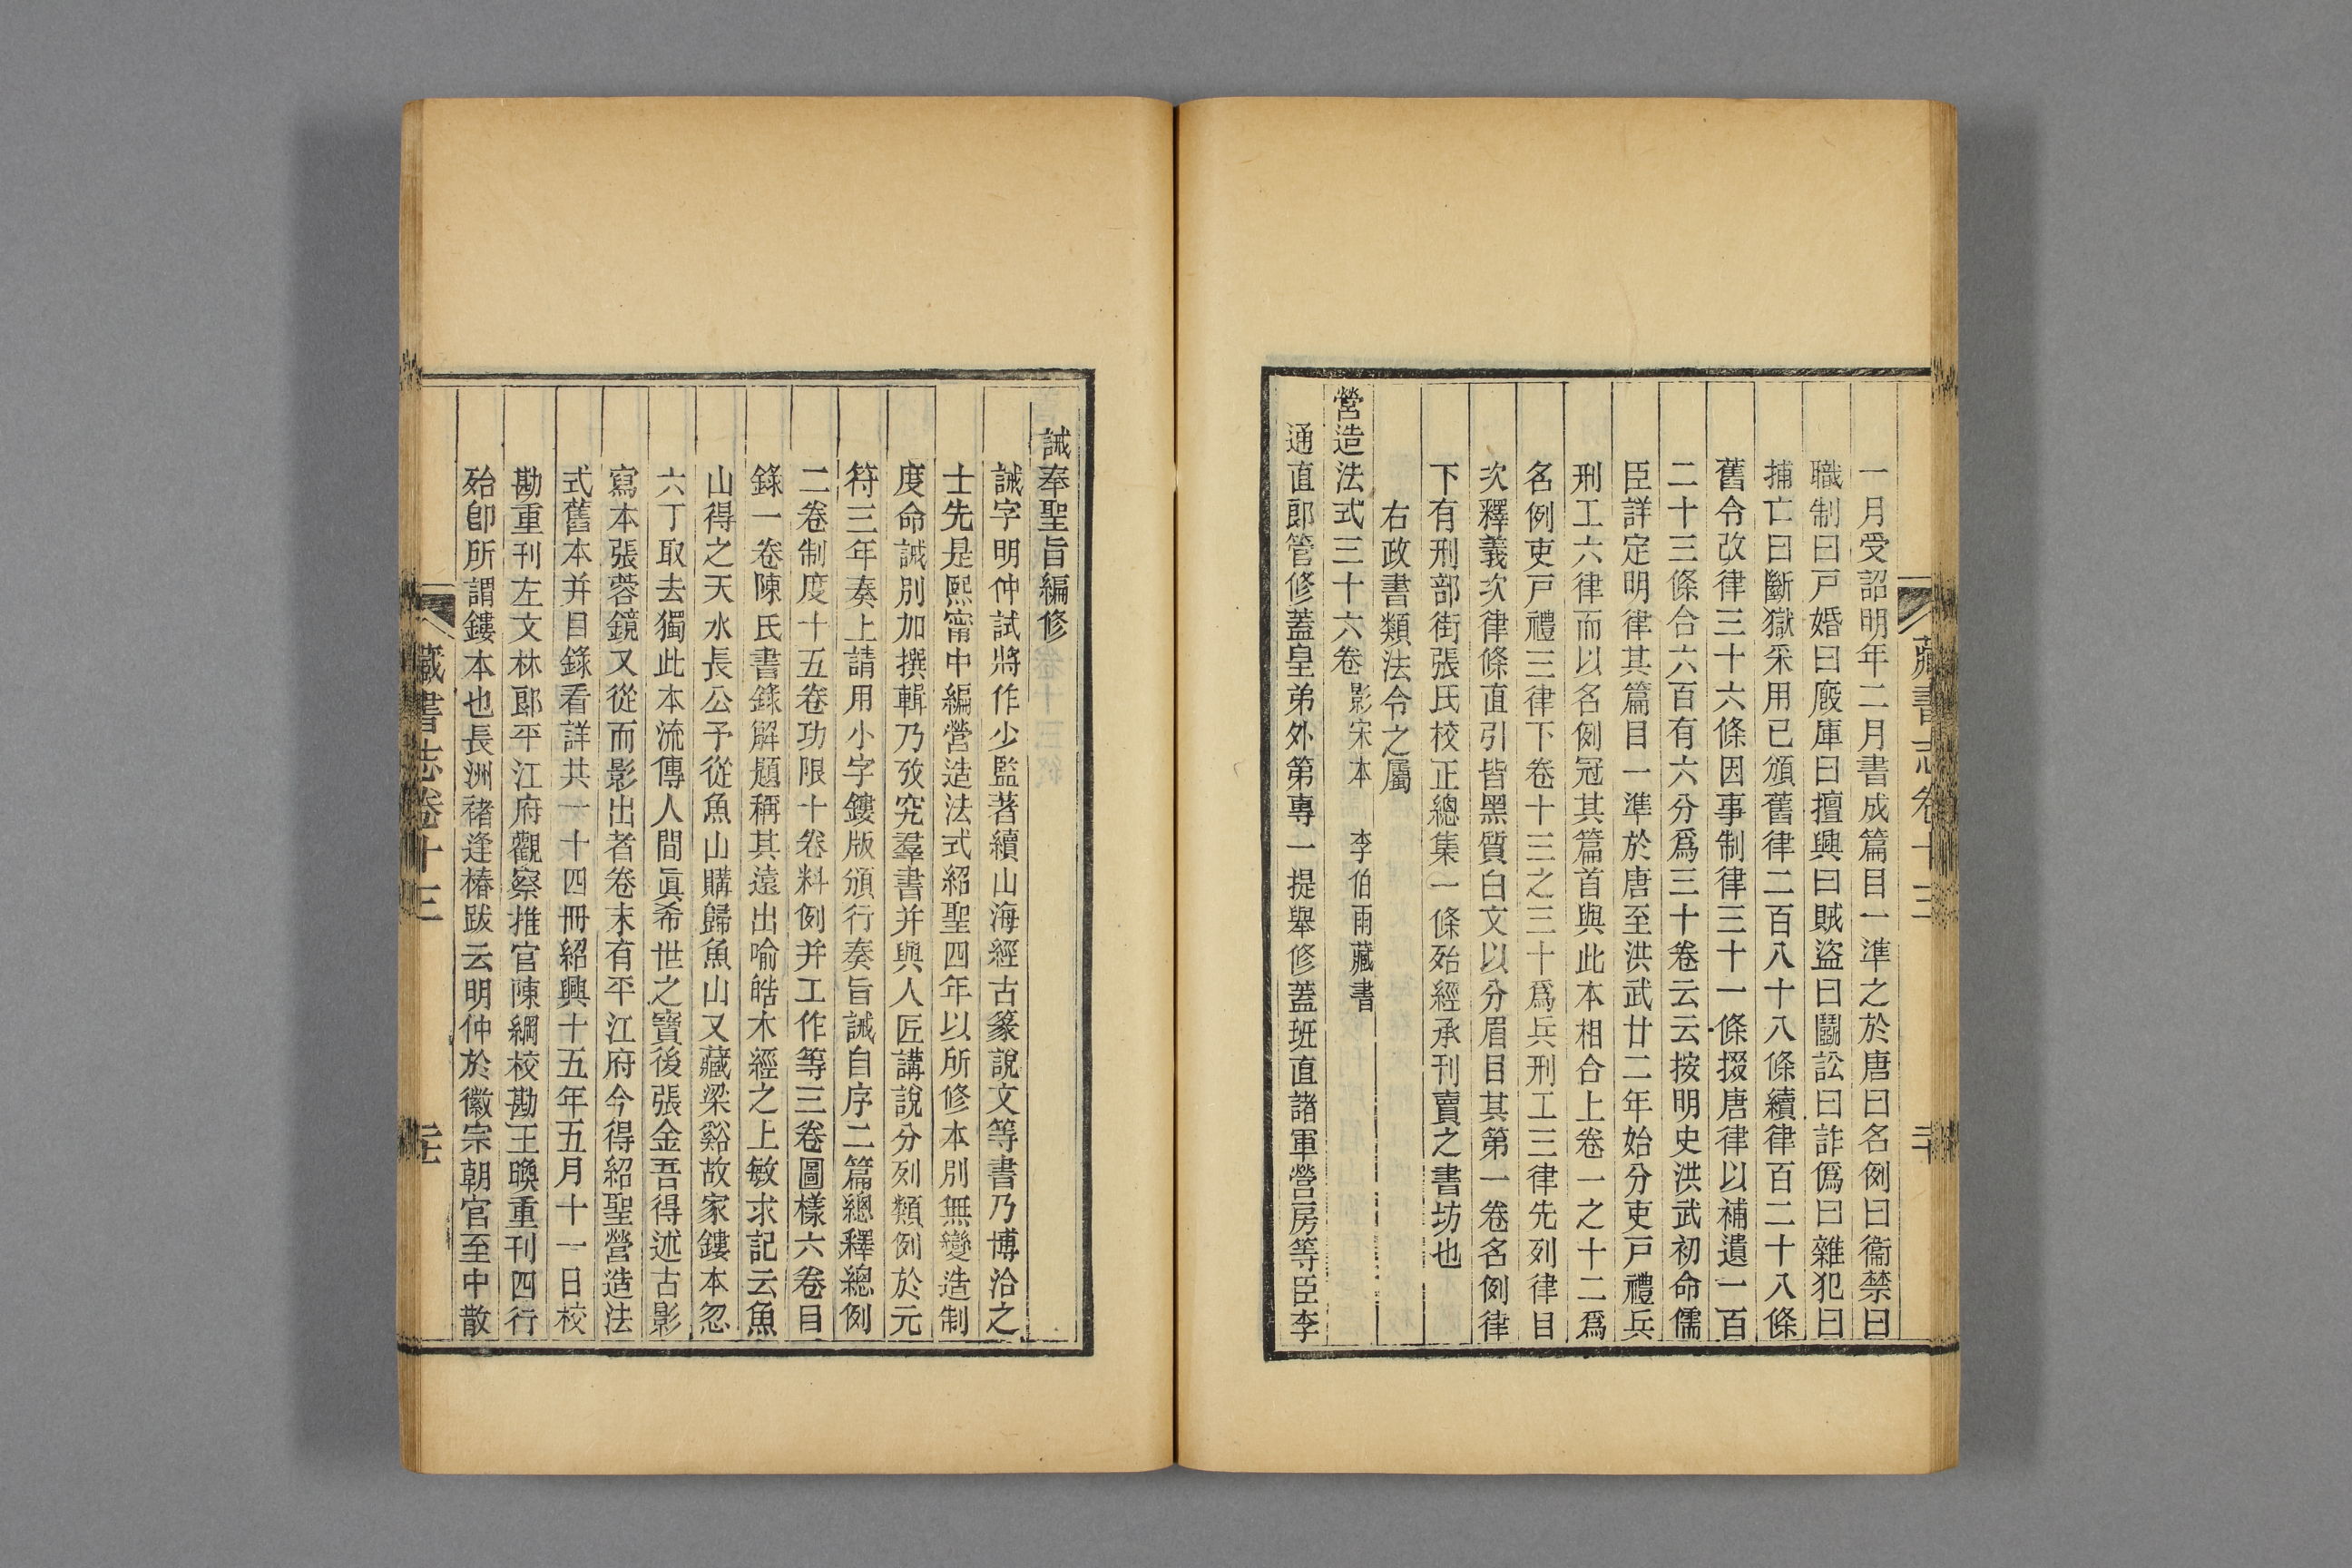 一月受詔明年二月書成篇目一準之於唐曰名例曰衞禁曰
職制曰戸婚曰廏庫曰擅興曰賊盜曰鬭訟曰詐僞曰雜犯曰
捕亡曰斷獄采用已頒舊律二百八十八條續律百二十八條
舊令改律三十六條因事制律三十一條掇唐律以補遺一百
二十三條合六百有六分爲三十卷云云按明史洪武初命儒
臣詳定明律其篇目一準於唐至洪武廿二年始分吏戸禮兵
刑工六律而以名例冠其篇首與此本相合上卷一之十二爲
名例吏戸禮三律下卷十三之三十爲兵刑工三律先列律目
次釋義次律條直引皆黑質白文以分眉目其第一卷名例律
下有刑部街張氏校正總集一條殆經承刊賣之書坊也
右政書類法令之屬
營造法式三十六卷 影宋本 李伯雨藏書
通直郎管修蓋皇弟外第專一提舉修蓋班直諸軍營房等臣李
藏書志卷十三
誡奉聖旨編修
誡字明仲試將作少監著續山海經古篆說文等書乃博洽之
士先是熙甯中編營造法式紹聖四年以所修本別無變造制
度命誡別加撰輯乃攷究羣書并與人匠講說分列類例於元
符三年奏上請用小字鏤版頒行奏旨誡自序二篇總釋總例
二卷制度十五卷功限十卷料例并工作等三卷圖樣六卷目
錄一卷陳氏書錄解題稱其遠出喻皓木經之上敏求記云魚
山得之天水長公予從魚山購歸魚山又藏梁谿故家鏤本忽
六丁取去獨此本流傳人間眞希世之寶後張金吾得述古影
寫本張蓉鏡又從而影出者卷末有平江府今得紹聖營造法
式舊本并目錄看詳共一十四冊紹興十五年五月十一日校
勘重刊左文林郎平江府觀察推官陳綱校勘王晙重刊四行
殆卽所謂鏤本也長洲褚逢椿跋云明仲於徽宗朝官至中散
藏書志卷十三